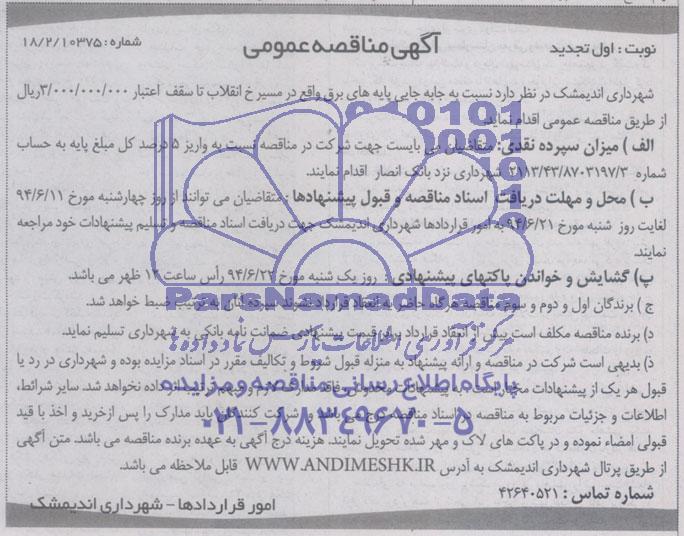 نوبت : اول تجدید
آگهی مناقصه عمومی
شماره : ۱۸/۲/۱۰۳۷۵
شهرداری اندیمشک در نظر دارد نسبت به جابه جایی پایه های برق واقع در مسیر خ انقلاب تا سقف اعتبار ۳/۰۰۰/۰۰۰/۰۰۰ریال
از طریق مناقصه عمومی اقدام نماید.
الف ) میزان سپرده نقدی: متقاضیان می بایست جهت شرکت در مناقصه نسبت به واریز ۵ درصد کل مبلغ پایه به حساب
شماره ۲۱۱۳/۴۳/۸۷۰۳۱۹۷/۳ شهرداری نزد بانک انصار اقدام نمایند.
ب ) محل و مهلت دریافت اسناد مناقصه و قبول پیشنهادها : متقاضیان می توانند از روز چهارشنبه مورخ ۹۴/۶/۱۱
لغایت روز شنبه مورخ ۹۴/۶/۲۱ به امور قراردادها شهرداری اندیمشک جهت دریافت اسناد مناقصه و تسلیم پیشنهادات خود مراجعه
نمایند.
پ) گشایش و خواندن پاکتهای پیشنهادی : روز یک شنبه مورخ ۹۴/۶/۲۲ رأس ساعت ۱۲ ظهر می باشد.
ج ) برندگان اول و دوم و سوم مناقصه هرگاه حاضر به انعقاد قرارداد نشوند سپرده آنان به ترتیب ضبط خواهد شد.
د) برنده مناقصه مکلف است پیش از انعقاد قرارداد برابر قیمت پیشنهادی ضمانت نامه بانکی به شهرداری تسلیم نماید.
ذ) بدیهی است شرکت در مناقصه و ارائه پیشنهاد به منزله قبول شروط و تکالیف مقرر در اسناد مزایده بوده و شهرداری در رد یا
قبول هر یک از پیشنهادات مختار است. به پیشنهادات داده نخواهد شد. سایر شرائط،
اطلاعات و جزئیات مربوط به مناقصه در اسناد مناقصه درج می باشد. شرکت کنندگان باید مدارک را پس ازخرید و اخذ با قید
قبولی امضاء نموده و در پاکت های لاک و مهر شده تحویل نمایند. هزینه درج آگهی به عهده برنده مناقصه می باشد. متن آگهی
از طریق پرتال شهرداری اندیمشک به آدرس WWW.ANDIMESHK.IR قابل ملاحظه می باشد.
شماره تماس : ۴۲۶۴۰۵۲۱
امور قراردادها - شهرداری اندیمشک
ParsNamadData
مرکز فرآوری اطلاعات پارس نماد داده ها
پایگاه اطلاع رسانی مناقصه و مزایده
۰۲۱-۸۸۳۴۹۶۷۰-۵